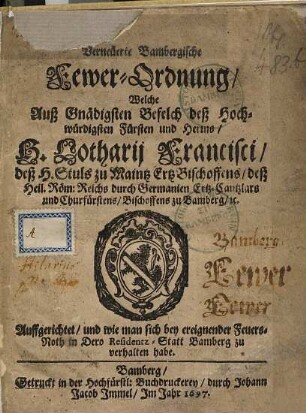 Verneuerte Bambergische
Fewer-Ordnung/
Welche
Auß Gnädigsten Befelch deß Hoch-
würdigsten Fürsten und Herrns/
H. Lotharij Francisci/
deß H. Stuls zu Maintz Ertz Bischoffens/ deß
Heil. Röm: Reichs durch Germanien Ertz-Cantzlars
und Churfürstens/ Bischoffens zu Bamberg/ ꝛc.
Bamberg
Fewer
Auffgerichtet/ und wie man sich bey ereignender Feuers-
Noth in Dero Residentz-Statt Bamberg zu
verhalten habe.
Bamberg/
Getruckt in der Hochfürstl: Buchdruckerey/ durch Johann
Jacob Immel/ Im Jahr 1697.